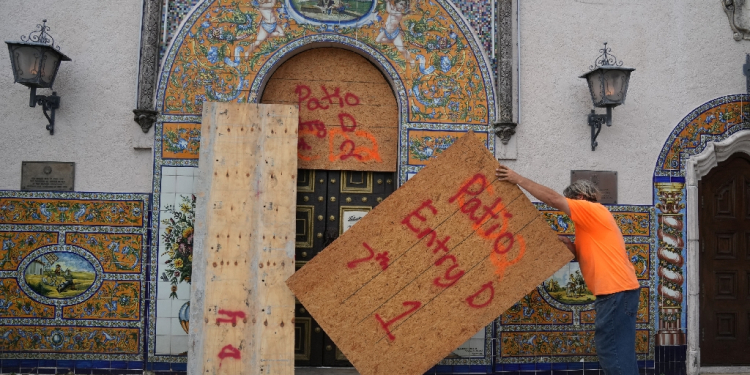 Patio
D
2
Patio
Entry D
7th
1